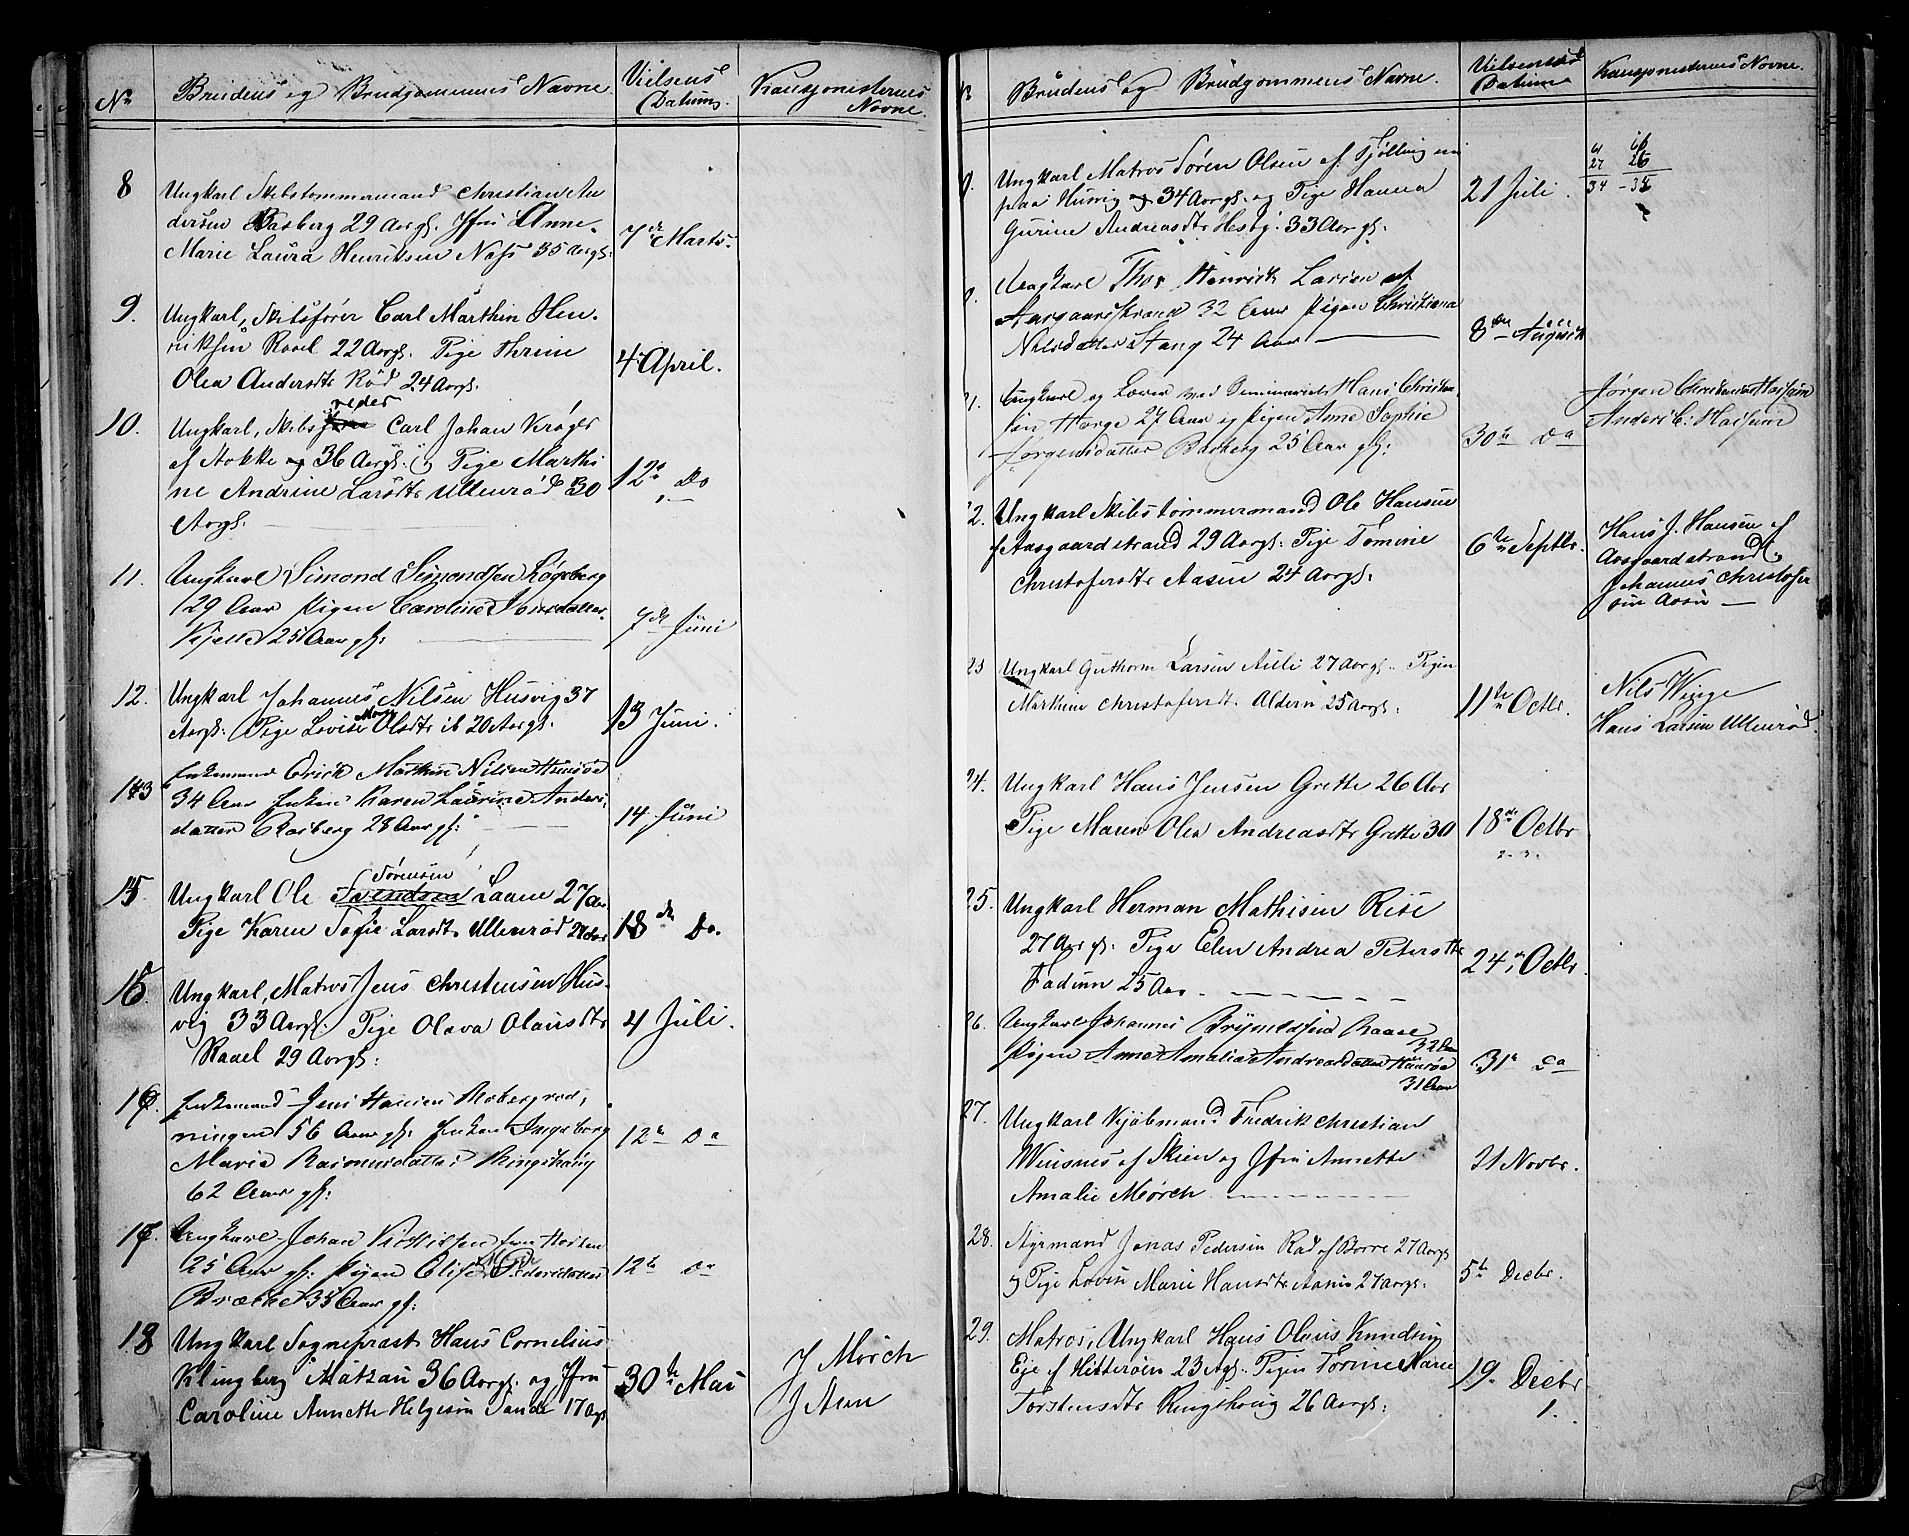 No Brudens og Brudgommens Navne. Vielsens Datum. Kausjonisternes Navne.
8 Ungkarl Skibstømmermand Christian An
dersen Basberg 29 Aargl. Jfru Anne
Marie Laura Henriksen Næss 35 Aargl.
7de Marts.
9. Ungkarl, Skibsfører Carl Marthin Hen
riksen Rael 22 Aargl. Pige Thrine
Olea Andersdtr Rød 24 Aargl.
4 April.
reder
10. Ungkarl, Skibs Carl Johan Krøger
af Stokke 36 Aargl. og Pige Marthi
ne Andrine Larsdtr Ullenrød 30
Aargl.
12 Do
11. Ungkarl Simond Simondsen
29 Aar Pigen Caroline
Kjelle 25 Aar gl:
7de Juni
12. Ungkarl Johannes Nilsen Husvig 37
Aargl. Pige Lovise Olsdtr ib 20 Aargl.
13 Juni.
13 Enkemand Erick Mathias Nilsen
34 Aar Enken Karen Laurine Anders
datter Basberg 28 Aar gl:
14 Juni
Sørensen
15 Ungkarl Ole Svendsen Laane 27 Aar
Pige Karen Sofie Larsdtr Ullenrød 27 Aar
18de Do.
15. Ungkarl, Matros Jens Christensen Hus
vig 33 Aargl. Pige Olava Olausdtr
Rael 29 Aargl:
4 Juli.
16. Enkemand Jens Hansen
ningen 56 Aar gl. Enken Ingeborg
Maria Rasmusdatter Ringshaug
62 Aar gl:
12te Do
17. Ungkarl Johan fra Horten
25 Aar gl: Pigen Pedersdatter
Brække 35 Aar gl:
12te Do
18 Ungkarl Sognepræst Hans Cornelius
Klingberg 36 Aargl. og Jfru
Caroline Annette Helgesen Sande 17 Aargl
30te Mai
J Mørch
J
Brudens og Brudgommens Navne. Vielsens Datum Kausjonisternes Navne.
Ungkarl Matros Søren Olsen af Tjølling nu
paa Husvig 34 Aargl. og Pige Hanna
Gurine Andreasdtr Hesby. 33 Aargl.
21 Juli.
61 61
27 26
34 - 35
Ungkarl Thor Henrick Larsen af
Aasgaardstrand 32 Aar Pigen Christiana
Nilsdatter Stang 24 Aar
8de August
21. Ungkarl og Lærer ved Seminariet Hans Christian
sen Horge 27 Aar og Pigen Anne Sophie
Jørgensdatter Basberg 25 Aar gl:
30te Do
Jørgen
Anders C.
22. Ungkarl Skibstømmermand Ole Hansen
af Aasgaardstrand 29 Aargl. Pige Tomine
Christofersdtr Aasen 24 Aargl.
6te Septbr.
Hans J. Hansen af
Aasgaardstrand,
Johannes Christofer
sen Aasen
23 Ungkarl Guthorm Larsen Auli 27 Aargl. Pigen
Marthine Christofersdtr. Aldern 25 Aargl.
11te Octbr.
Nils Winge
Hans Larsen Ullenrød.
24. Ungkarl Hans Jensen Grette 26 Aar
Pige Maren Olea Andreasdtr Grette 30
18de Octbr
25. Ungkarl Herman Mathisen Rise
27 Aar gl. Pige Elen Andrea Petersdtr
Fadum 25 Aar.
24de Octbr.
26. Ungkarl Johannes Brynildsen
32 Aar
Pigen Anne Amalie Andreasdatter
31 Aar
31te Do
27. Ungkarl Kjøbmand Fredrik Christian
af Skien og Jfru Annette
Amalie Mørch.
21 Novbr.
28. Styrmand Jonas Pedersen Rød af Borre 27 Aargl
og Pige Lovise Marie Hansdtr Aasen 27 Aargl.
5te Decbr.
29. Matros, Ungkarl Hans Olaus Knudsen
Eje af Hitterøen 23 Agl. Pigen Tomine Marie
Torstensdtr Ringshoug 26 Aargl.
19. Decbr
1.